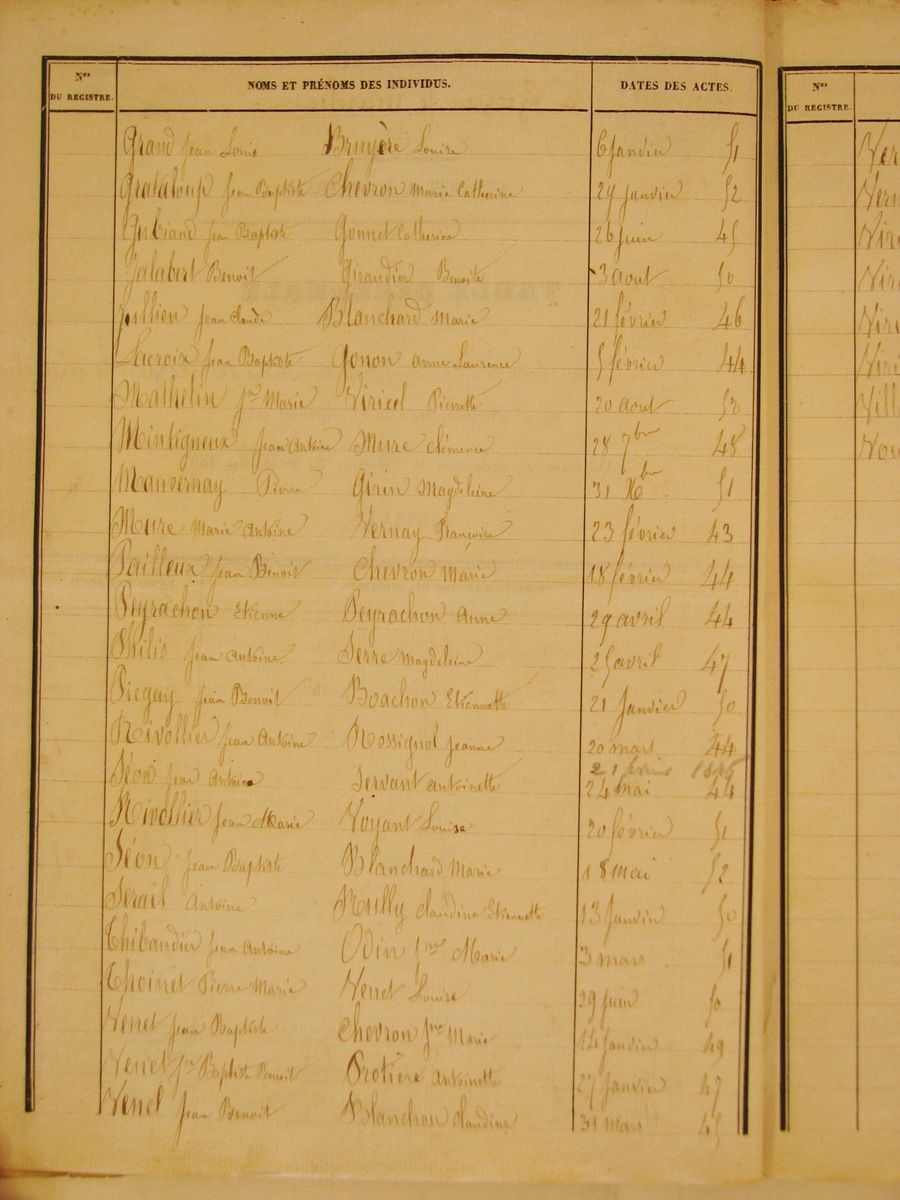 Nos DU REGISTRE. NOMS ET PRÉNOMS DES INDIVIDUS. DATES DES ACTES. Nos DU REGISTRE.
Grand Jean Louis Bruyère Louise 6 Janvier 51
Grataloup Jean Baptiste Chevron Marie Catherine 29 janvier 52
Jean Baptiste Gonnet Catherine 26 juin 45
Jalabert Benoit Giraudier Benoite 3 aout 50
Jullien Jean Claude Blanchard Marie 21 février 46
Lacroix Jean Baptiste Gonon anne Laurence 5 février 44
Mathelin Jn Marie Viricel Pierrette 20 aout
Jean Antoine Mure Clémence 28 7bre 48
Mauvernay Pierre Girin Magdeleine 31 Xbre 51
Mure Marie Antoine Vernay Françoise 23 février 43
Pailleux Jean Benoit Chevron Marie 18 février 44
Peyrachon Etienne Peyrachon Anne 29 avril 44
Philis Jean Antoine Serre Magdeleine 25 avril 47
Piegay Jean Benoit Boachon Etiennette 21 Janvier 50
Rivollier Jean Antoine Rossignol Jeanne 20 mars 44
21
Séon Jean Antoine Servant Antoinette 24 mai 44
Rivollier Jean Marie Voyant Louise 20 février 51
Séon Jean Baptiste Blanchard Marie 18 mai 52
Serail Antoine Claudine Etiennette 13 Janvier 50
Thibaudier Jean Antoine Odin Jne Marie 3 mars 51
Thoinet Pierre Marie Venet Louise 29 juin 50
Venet Jean Baptiste Chevron Jne Marie 14 janvier 49
Venet Jn Baptiste Benoit Protière Antoinette 27 janvier 47
Venet Jean Benoit Blanchon Claudine 31 mars 45